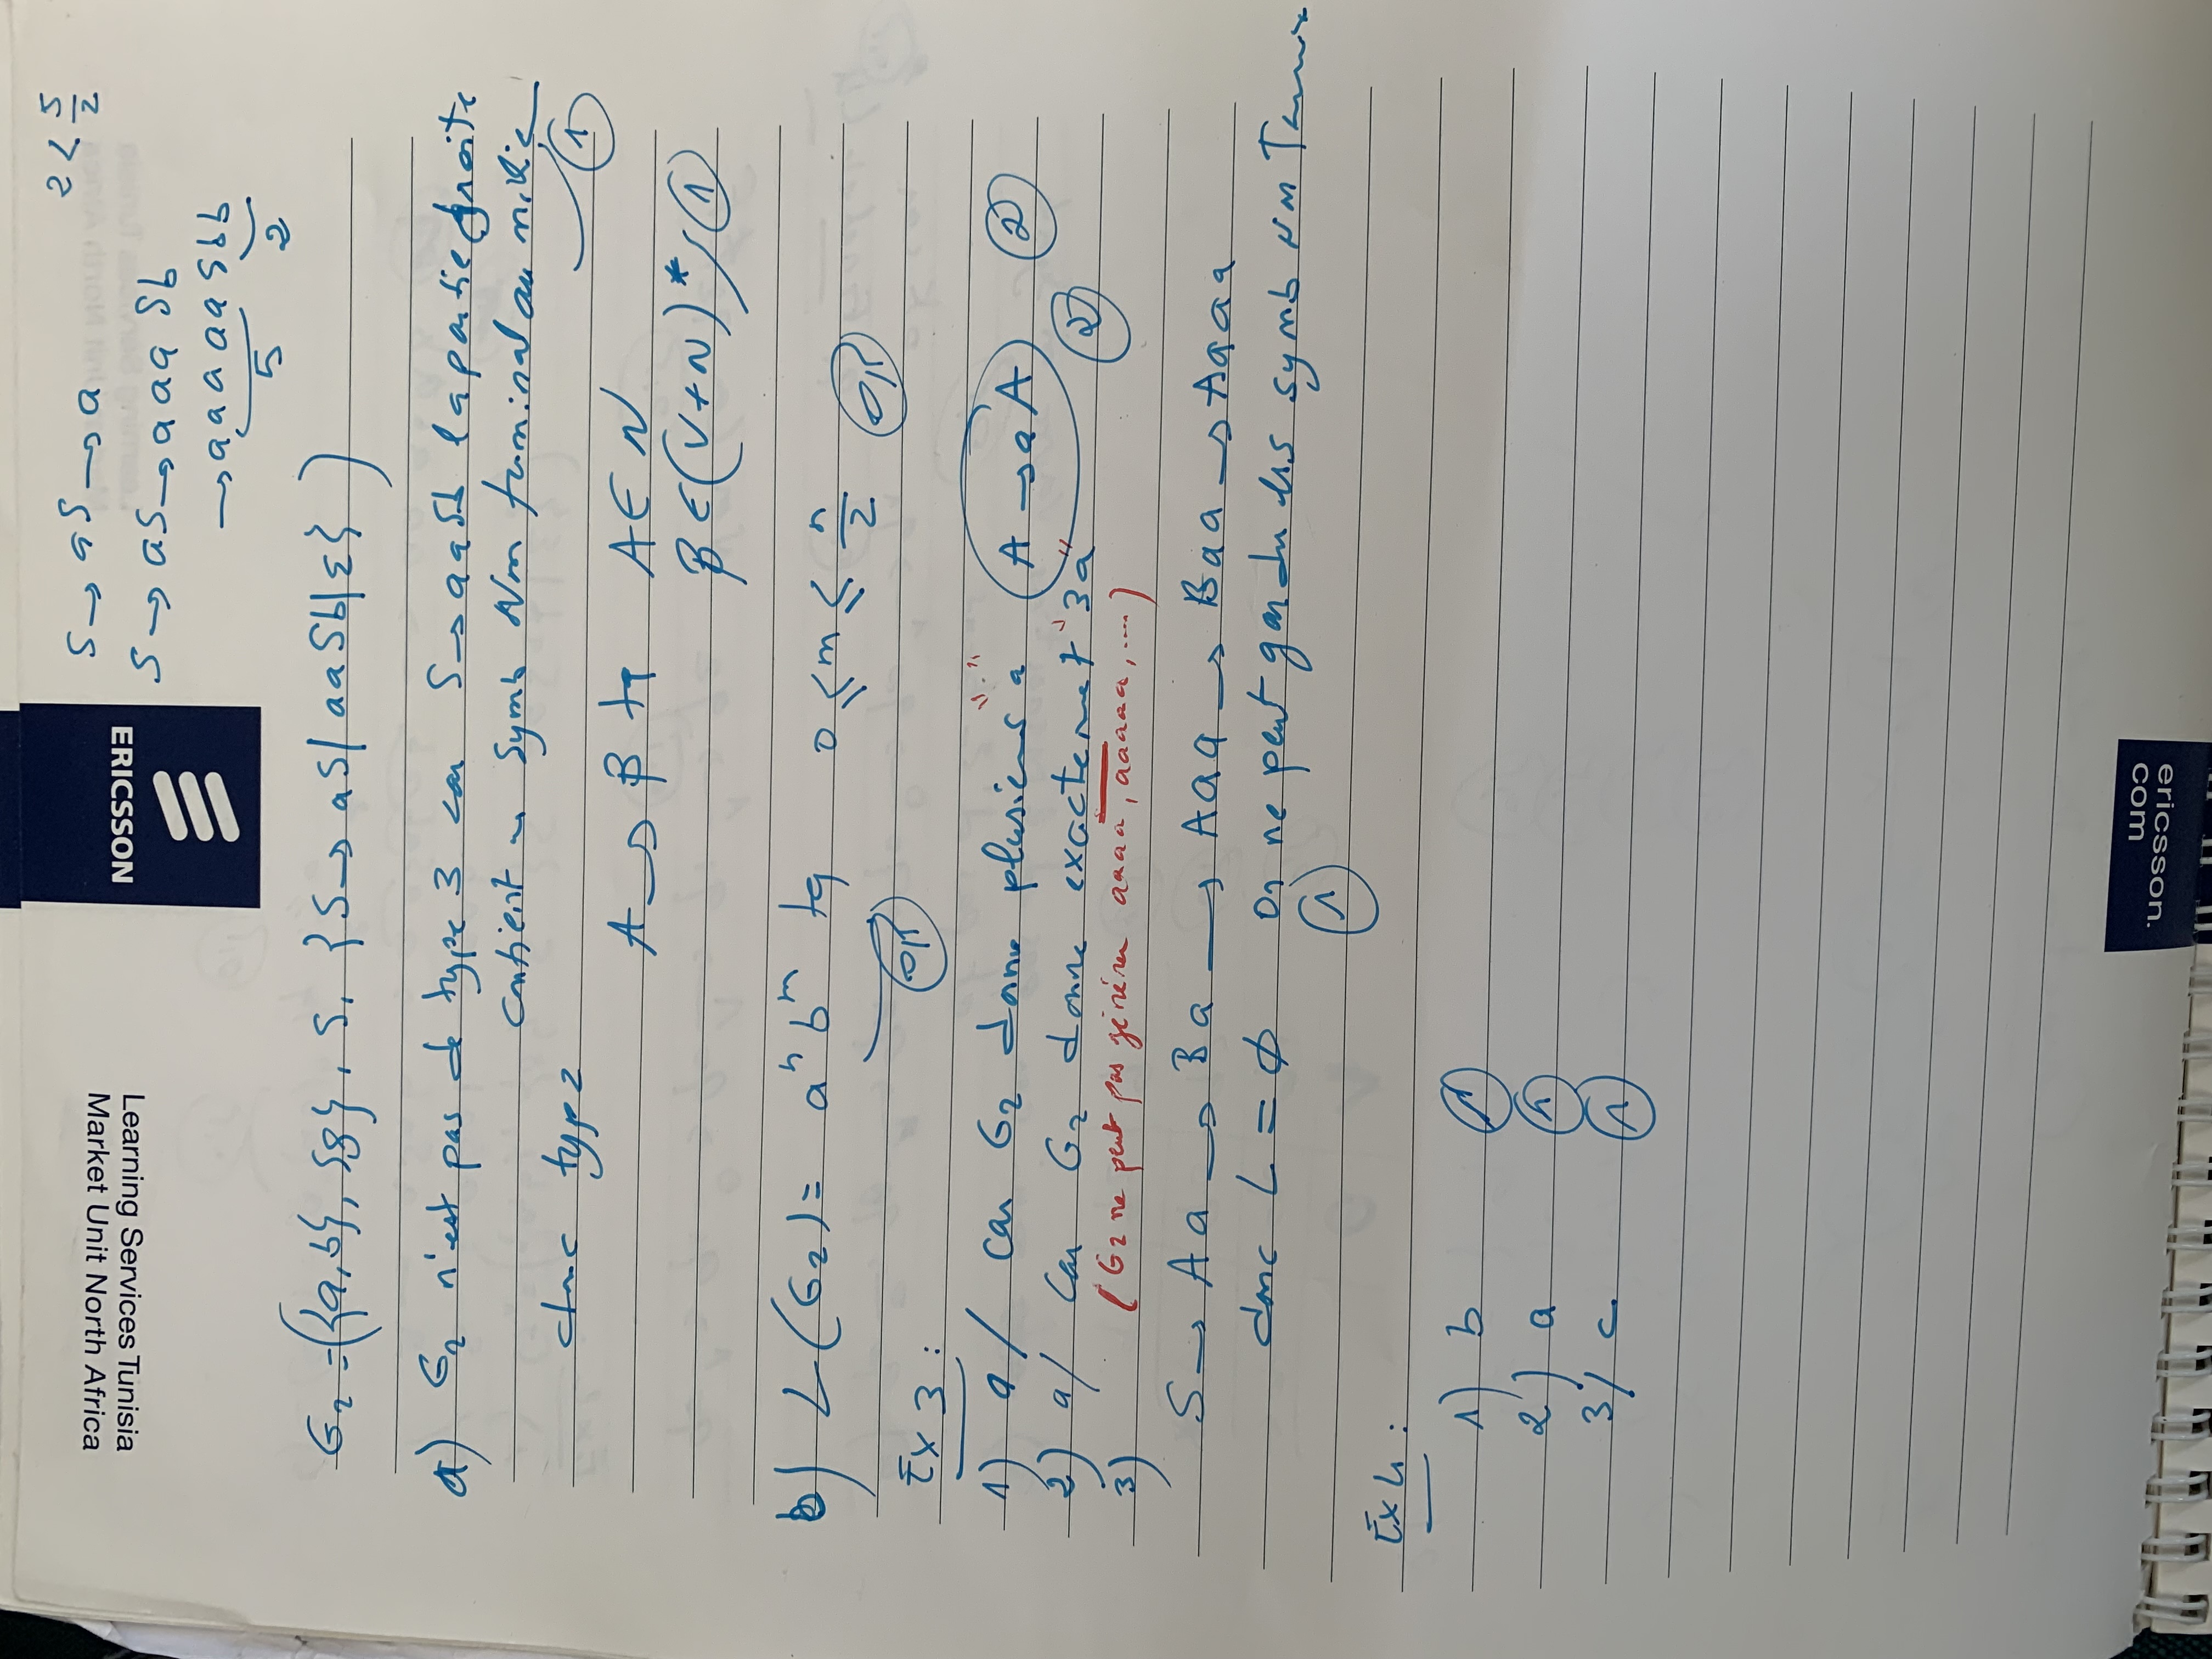 Learning Services Tunisia
Market Unit North Africa
ERICSSON
S → aS → a
2 < 5/2
S → aS → aaa Sb
→ aaaaa Sbb
5 2
G₂ = ({a,b}, {S}, S, {S → aS | aaSb | ε})
a) G₂ n'est pas de type 3 car S → aaSb la partie droite
contient un Symb Non terminal au milieu
donc type 2
1
A → β tq A ∈ N
β ∈ (V+N)* 1
b) L(G₂) = aⁿ bᵐ tq 0 ≤ m ≤ n/2
0,5 0,5
Ex 3 :
1) a/ Car G₂ donne plusieurs "a" A → aA 2
2) a/ Car G₂ donne exactement "3a" 2
(G₂ ne peut pas générer aaaa, aaaaa, ....)
3)
S → Aa → Ba → Aaa → Baa → Aaaa
donc L = ϕ On ne peut les symb Non
1
Ex 4 :
1) b 1
2) a 1
3/ c 1
ericsson.
com